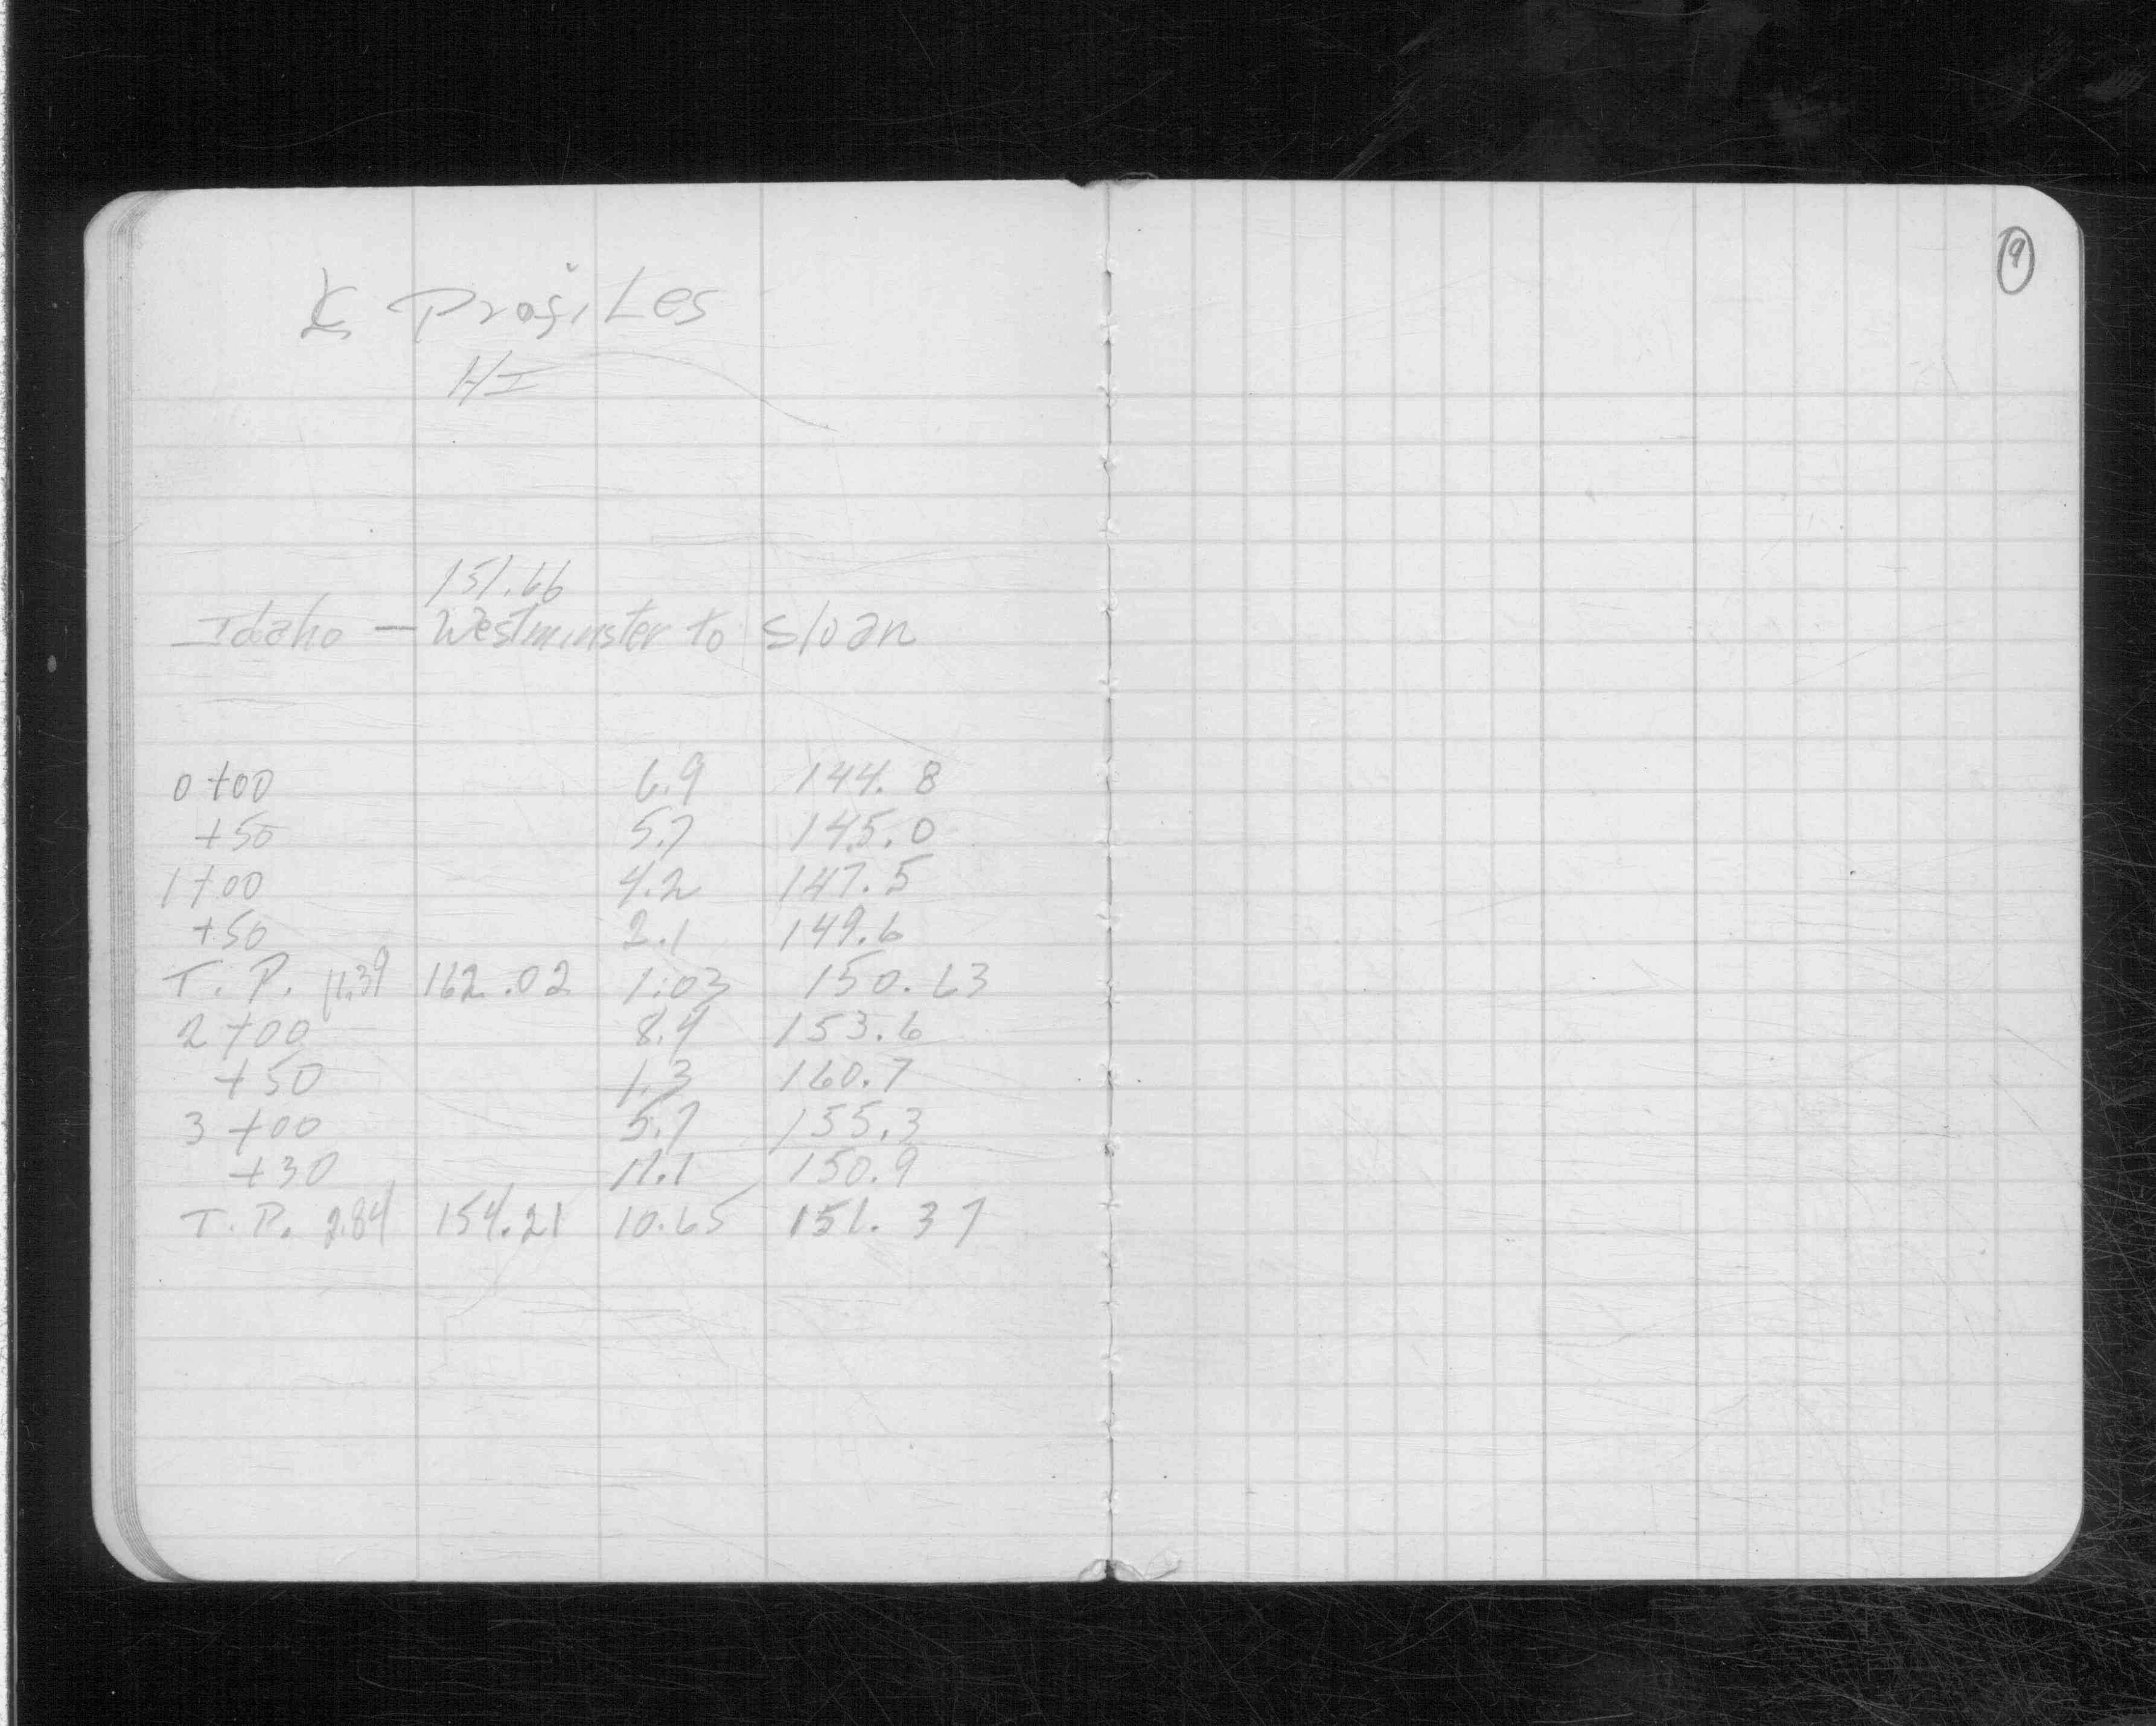 ℄ Profiles
HI
151.66
Idaho — Westminster to Sloan
0+00 6.9 144.8
+50 5.7 145.0
1+00 4.2 147.5
+50 2.1 149.6
T.P. 11.39 162.02 1.03 150.63
2+00 8.4 153.6
+50 1.3 160.7
3+00 5.7 155.3
+30 11.1 150.9
T.P. 2.84 154.21 10.65 151.37
9